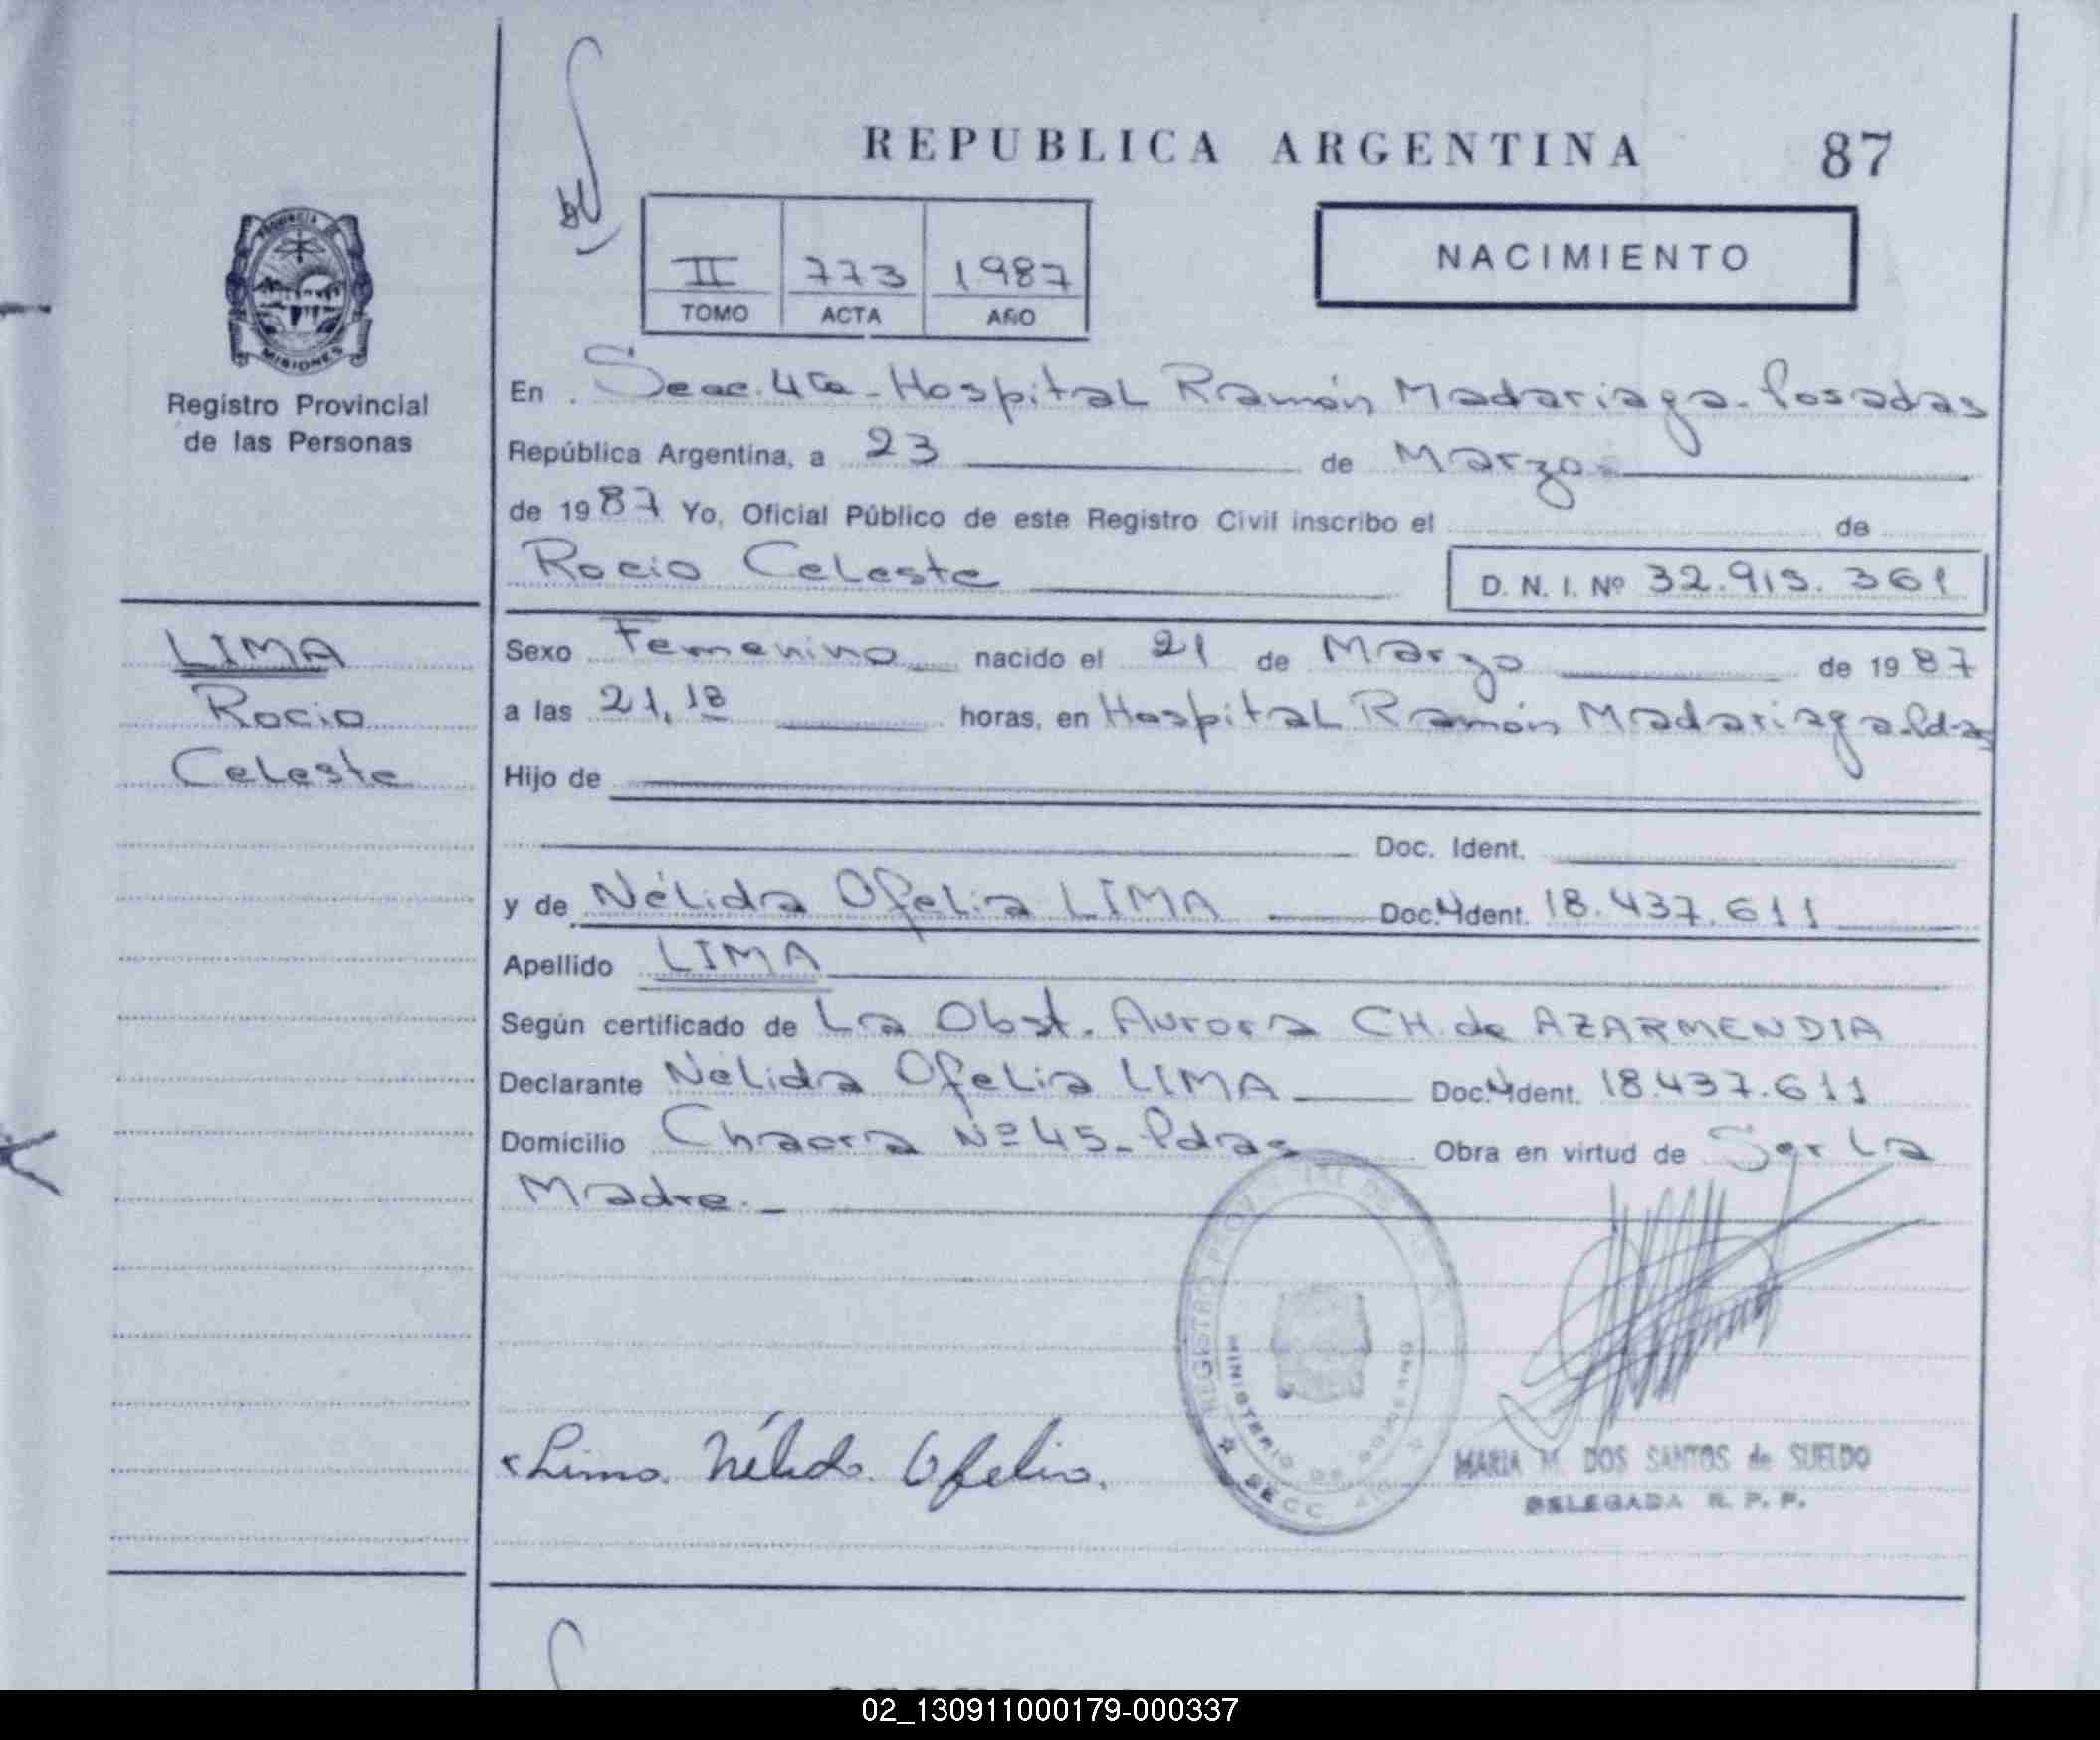 REPUBLICA ARGENTINA 87
II 773 1987
TOMO ACTA AÑO
NACIMIENTO
PROVINCIA DE
MISIONES
Registro Provincial
de las Personas
LIMA
Rocio
Celeste
En Secc. 4ta - Hospital Ramón Madariaga - Posadas
República Argentina, a 23 de Marzo
de 1987 Yo, Oficial Público de este Registro Civil inscribo el de
Rocio Celeste D. N. I. Nº 32.915.361
Sexo Femenino nacido el 21 de Marzo de 1987
a las 21,18 horas, en Hospital Ramón Madariaga-Pdas
Hijo de
Doc. Ident.
y de Nélida Ofelia LIMA Doc. Ident. 18.437.611
Apellido LIMA
Según certificado de La Obst. Aurora CH. de AZARMENDIA
Declarante Nélida Ofelia LIMA Doc. Ident. 18.437.611
Domicilio Chacra Nº 45 - Pdas Obra en virtud de Ser La
Madre. -
REGISTRO PROV. DE LAS
MINISTERIO DE GOBIERNO
SECC. 4ta
Lima Nélida Ofelia.
MARIA M. DOS SANTOS de SUELDO
DELEGADA R. P. P.
02_130911000179-000337